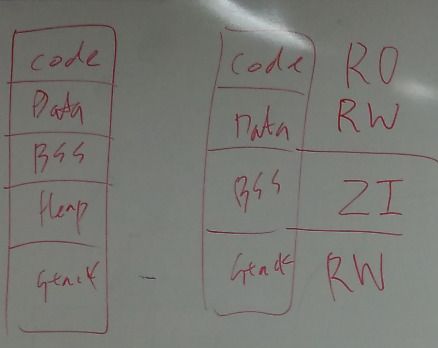 code
Data
BSS
Heap
Stack
code RO
Data RW
BSS ZI
Stack RW